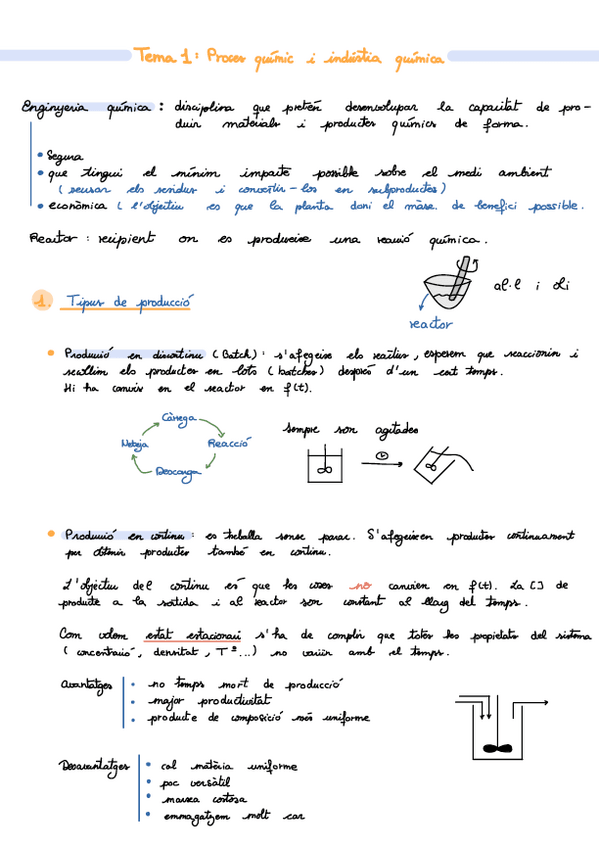 Tema 1: Proces químic i indústia química
Enginyeria química : disciplina que pretén desenvolupar la capacitat de pro-
duir materials i productes químics de forma.
• Segura
• que tingui el mínim impacte possible sobre el medi ambient
( reusar els residus i convertir-los en subproductes)
• econòmica ( l'objectiu es que la planta doni el màx. de benefici possible.
Reactor : recipient on es produeixe una reacció química.
al.l i oli
reactor
1. Tipus de producció
• Producció en discontinu ( Batch) : s'afegeixe els reactius, esperem que reaccionin i
recollim els productes en lots ( batches) després d'un cert temps.
Hi ha canvis en el reactor en f(t).
Càrrega
Neteja
Reacció
Descarga
sempre son agitades
• Producció en continu : es treballa sense parar. S'afegeixen productes contínuament
per obtenir productes també en continu.
L'objectiu del continu és que les coses no canvien en f(t). La [] de
producte a la sortida i al reactor son constant al llarg del temps.
Com volem estat estacionari s'ha de complir que totes les propietats del sistema
( concentració, densitat, Tª...) no variïn amb el temps.
Avantatges
• no temps mort de producció
• major productivitat
• producte de composició més uniforme
Desavantatges
• cal matèria uniforme
• poc versàtil
• marxa costosa
• emmagatzem molt car